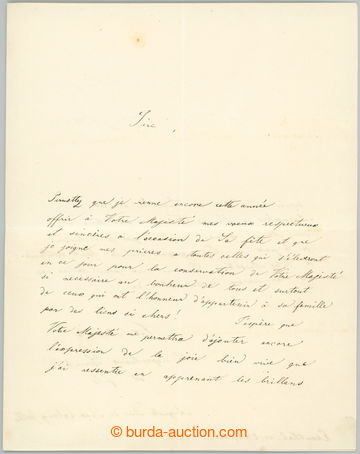 Sire,
Permettez que je vienne encore cette année
offrir à Votre Majesté mes vœux respectueux
et sincères à l'occasion de Sa fête et que
je joigne mes prières à toutes celles qui s'élèveront
en ce jour pour la conservation de Votre Majesté
si nécessaire au bonheur de tous et surtout
de ceux qui ont l'honneur d'appartenir à sa famille
par des liens si chers! J'espère que
Votre Majesté me permettra d'ajouter encore
l'expression de la joie bien vive que
j'ai ressentie en apprenant les brillans
© burda-auction.com